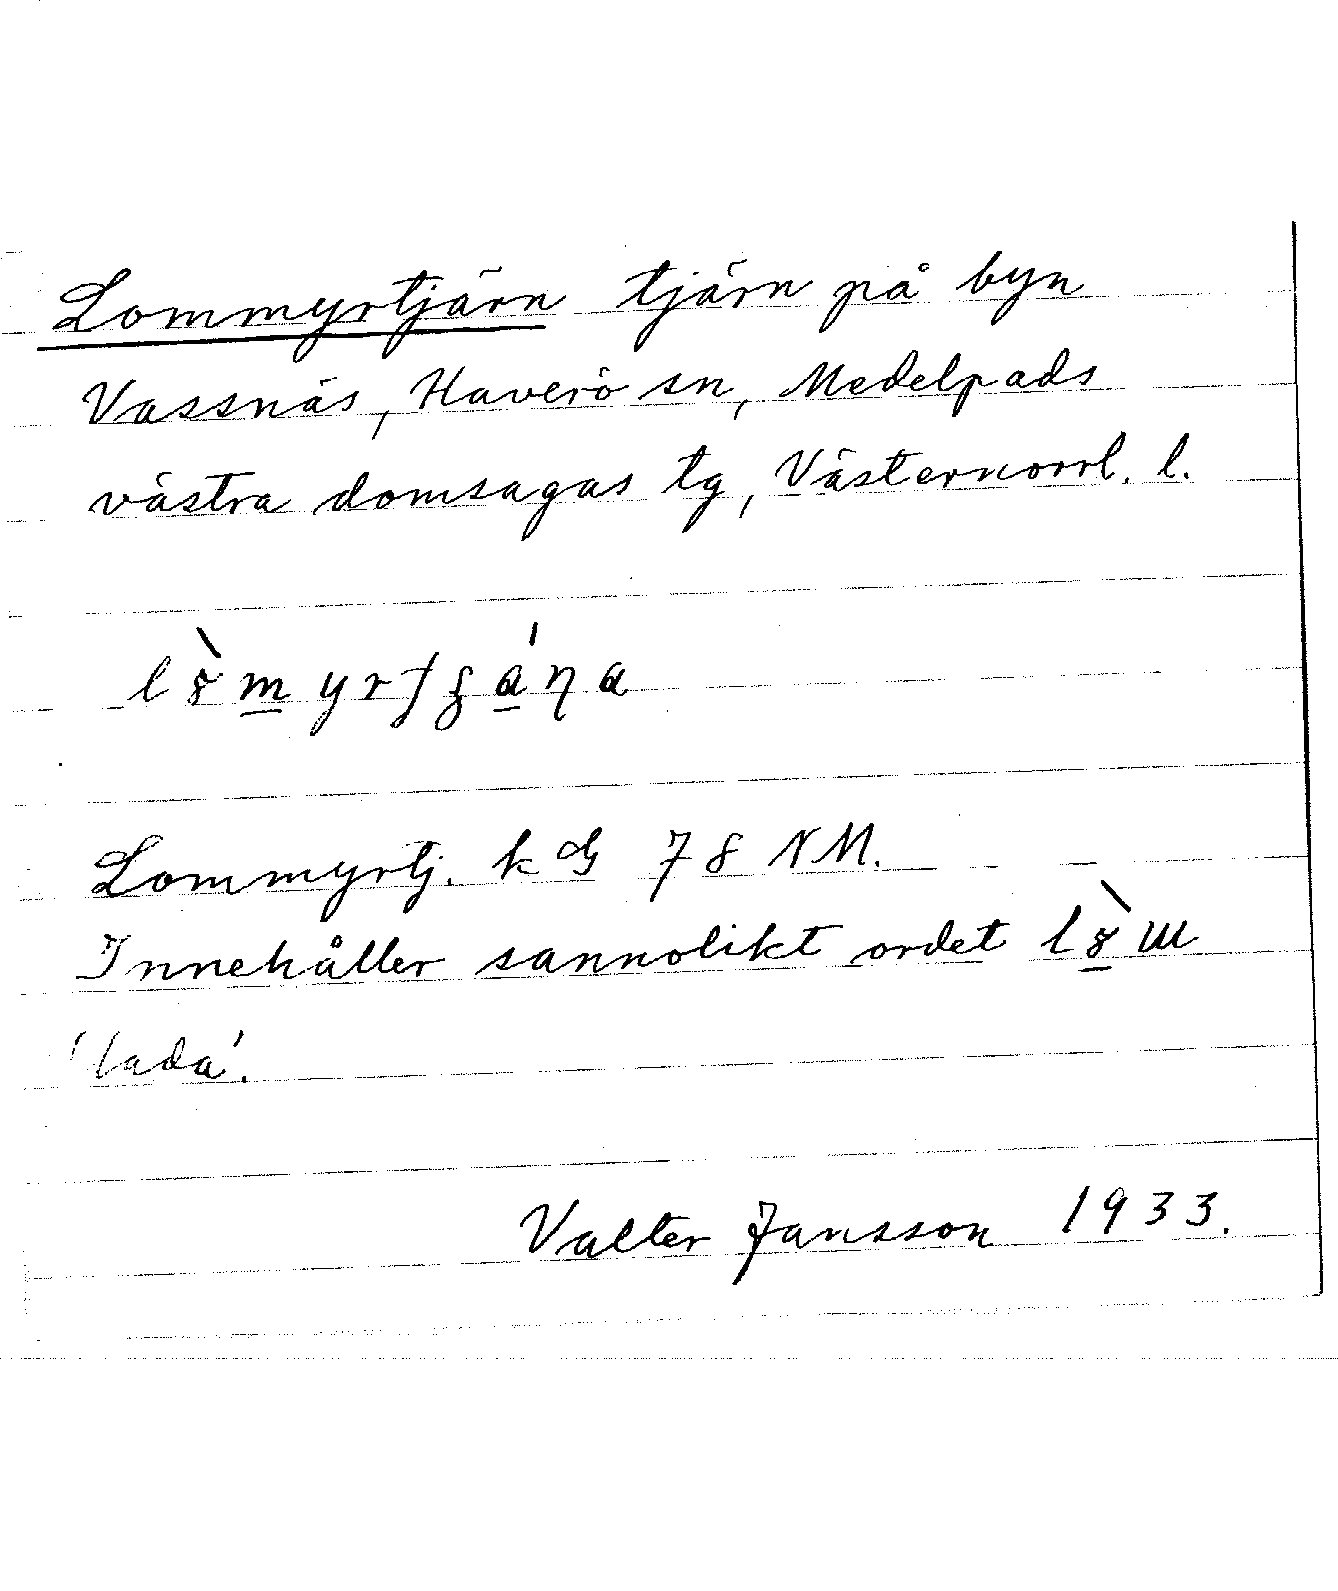 Lommyrtjärn tjärn på byn
Vassnäs, Haverö sn, Medelpads
västra domsagas tg, Västernorrl. l.
Lommyrtj. k G 78 NM.
Innehåller sannolikt ordet
'lada'.
Valter Jansson 1933.